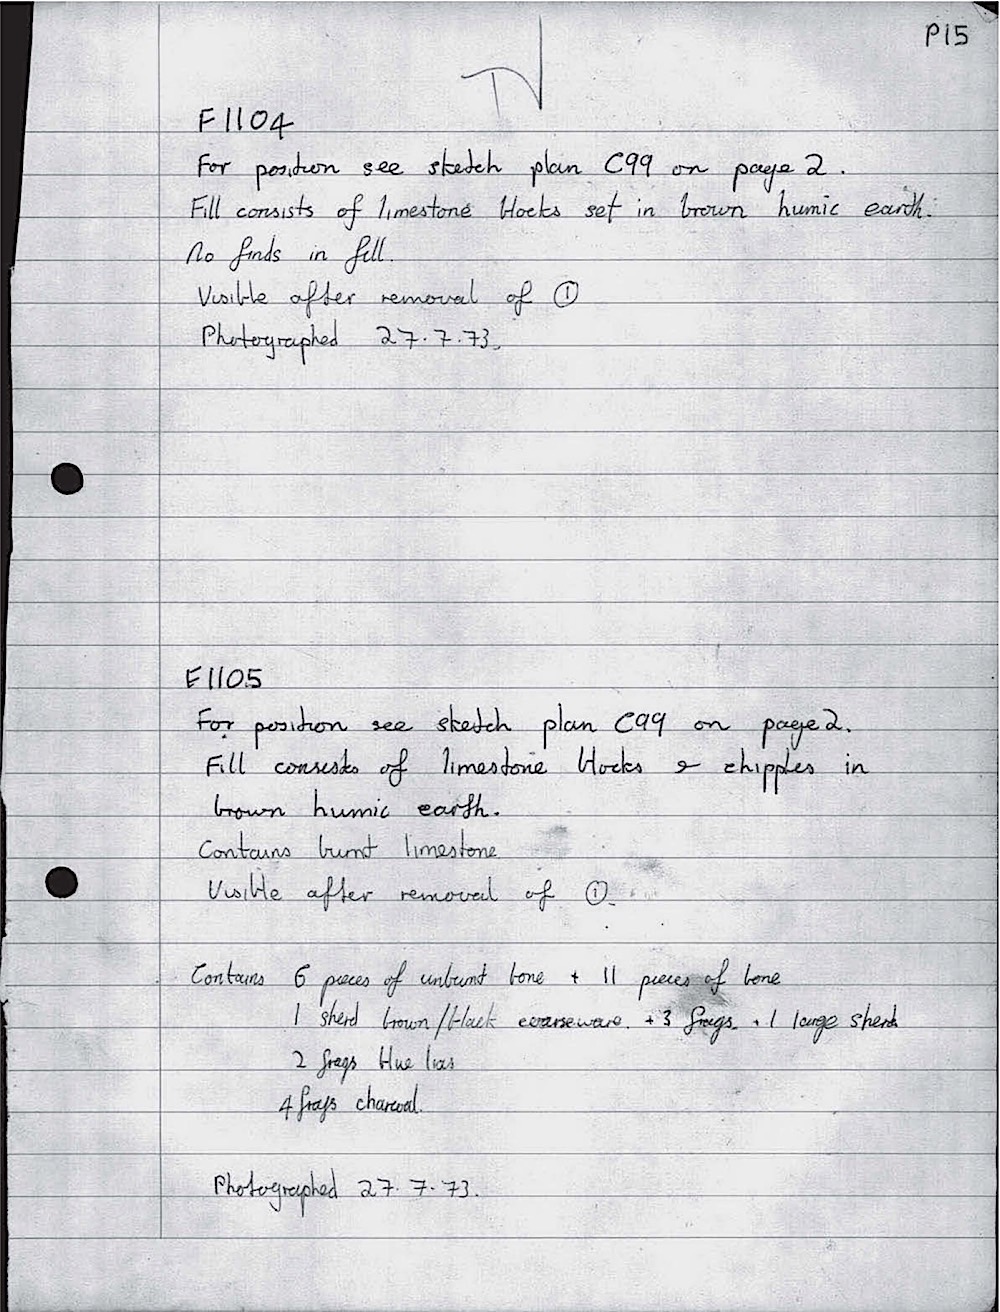 P15
F1104
For position see sketch plan C99 on page 2.
Fill consists of limestone blocks set in brown humic earth.
No finds in fill.
Visible after removal of ①
Photographed 27.7.73.
F1105
For position see sketch plan C99 on page 2.
Fill consists of limestone blocks & chipples in
brown humic earth.
Contains burnt limestone
Visible after removal of ①.
Contains 6 pieces of unburnt bone + 11 pieces of bone
1 sherd brown/black coarseware. + 3 frags. + 1 large sherd
2 frags blue lias
4 frags charcoal.
Photographed 27.7.73.